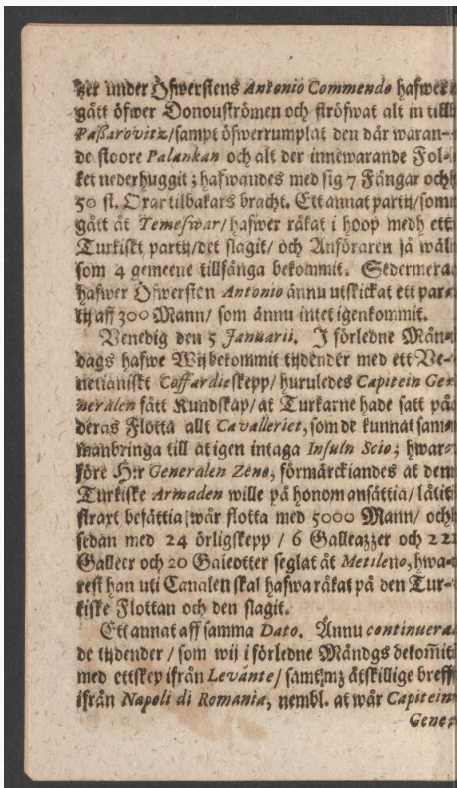 ter under Öfwerstens Antonio Commendo hafwer
gått öfwer Donouströmen och ströfwat alt in till
Paßarovitz/sampt öfwerrumplat den där waran-
de stoore Palankan och alt der innewarande Fol-
ket nederhuggit; hafwandes med sig 7 Fångar och
50 st. Oxar tilbakars bracht. Ett annat party/som
gått åt Temeswar/ hafwer råkat i hoop medh ett
Turkiskt party/det slagit/ och Anföraren så wäl
som 4 gemeene tillfånga bekommit. Sedermera
hafwer Öfwersten Antonio ännu utskickat ett par-
tij aff 300 Mann/ som ännu intet igenkommit.
Venedig den 5 Januarii. I förledne Mån-
dags hafwe Wij bekommit tijdender med ett Ve-
netianiskt Coffardie skepp/ huruledes Capitein Ge-
neralen fått Kundskap/at Turkarne hade satt på
deras Flotta allt Cavalleriet, som de kunnat sam-
manbringa till at igen intaga Insuln Scio; hwar-
före H:r Generalen Zeno, förmärckiandes at den
Turkiske Armaden wille på honom ansättia/ lätit
straxt besättia wår flotta med 5000 Mann/ och
sedan med 24 örligskepp / 6 Galleazzer och 22
Galleer och 20 Galeotter seglat åt Metileno, hwa-
rest han uti Canalen skal hafwa råkat på den Tur-
kiske Flottan och den slagit.
Ett annat aff samma Dato. Ännu continuera
de tijdender / som wij i förledne Måndgs bekom̃it
med ett skep ifrån Levante/ samt
åtskillige breff
ifrån Napoli di Romania, nembl. at wår Capitein
Gene-